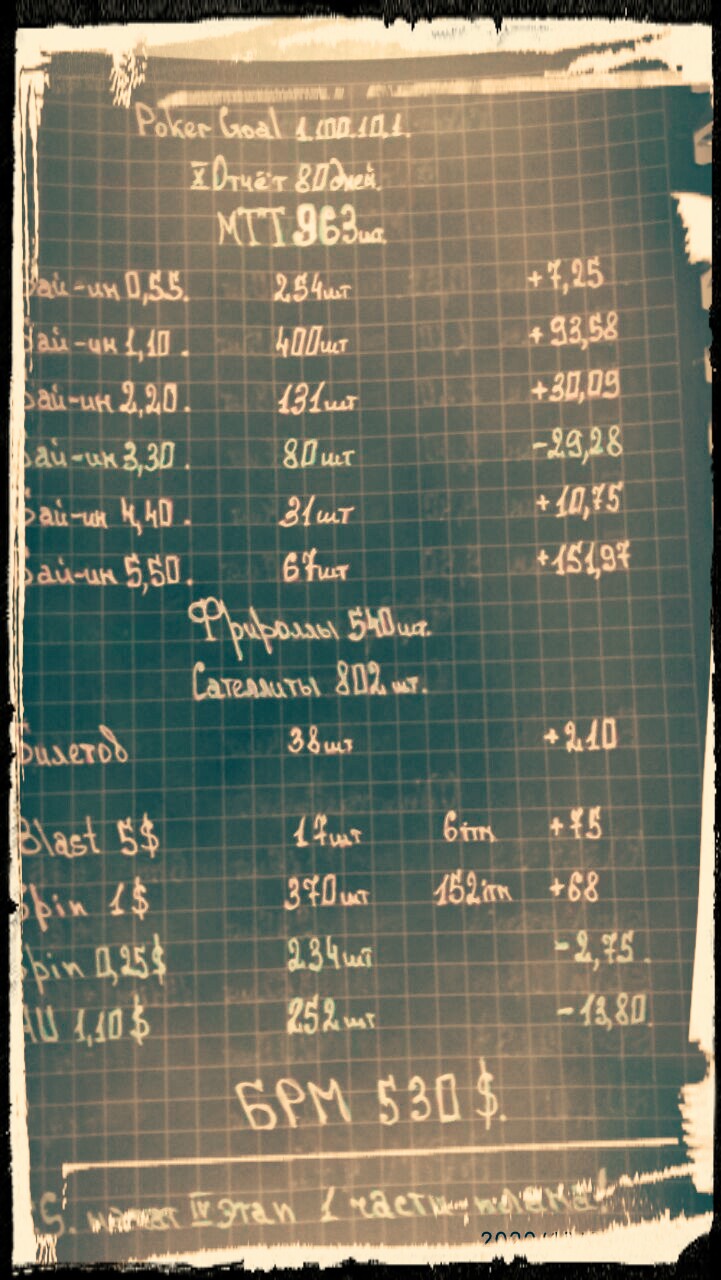 Poker Goal 1.100.10.1.
X Отчёт 80 дней.
МТТ 963шт.
бай-ин 0,55. 254шт +7,25
бай-ин 1,10. 400шт +93,58
бай-ин 2,20. 131шт +30,09
бай-ин 3,30. 80шт -29,28
бай-ин 4,40. 31шт +10,75
бай-ин 5,50. 67шт +151,97
Фрироллы 540шт.
Сателлиты 802шт.
билетов 38шт +210
Blast 5$ 17шт 6itm +75
Spin 1$ 370шт 152itm +68
Spin 0,25$ 234шт -2,75.
HU 1,10$ 252шт -13,80.
БРМ 530$.
начат IV этап 1 части плана!